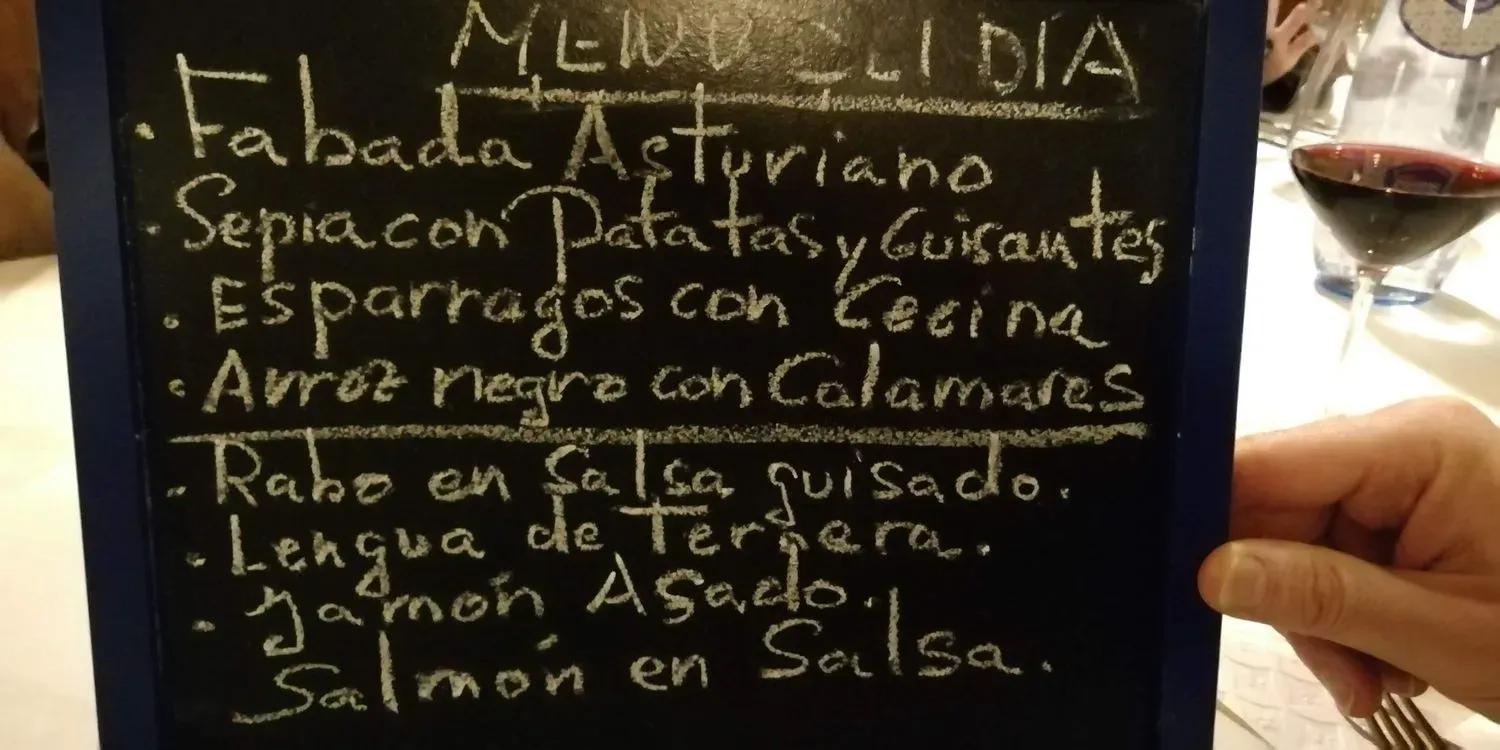 MENU DEL DÍA
· Fabada Asturiano
· Sepia con Patatas y Guisantes
· Esparragos con Cecina
· Arroz negro con Calamares
· Rabo en Salsa guisado.
· Lengua de Ternera.
· Jamón Asado.
Salmón en Salsa.